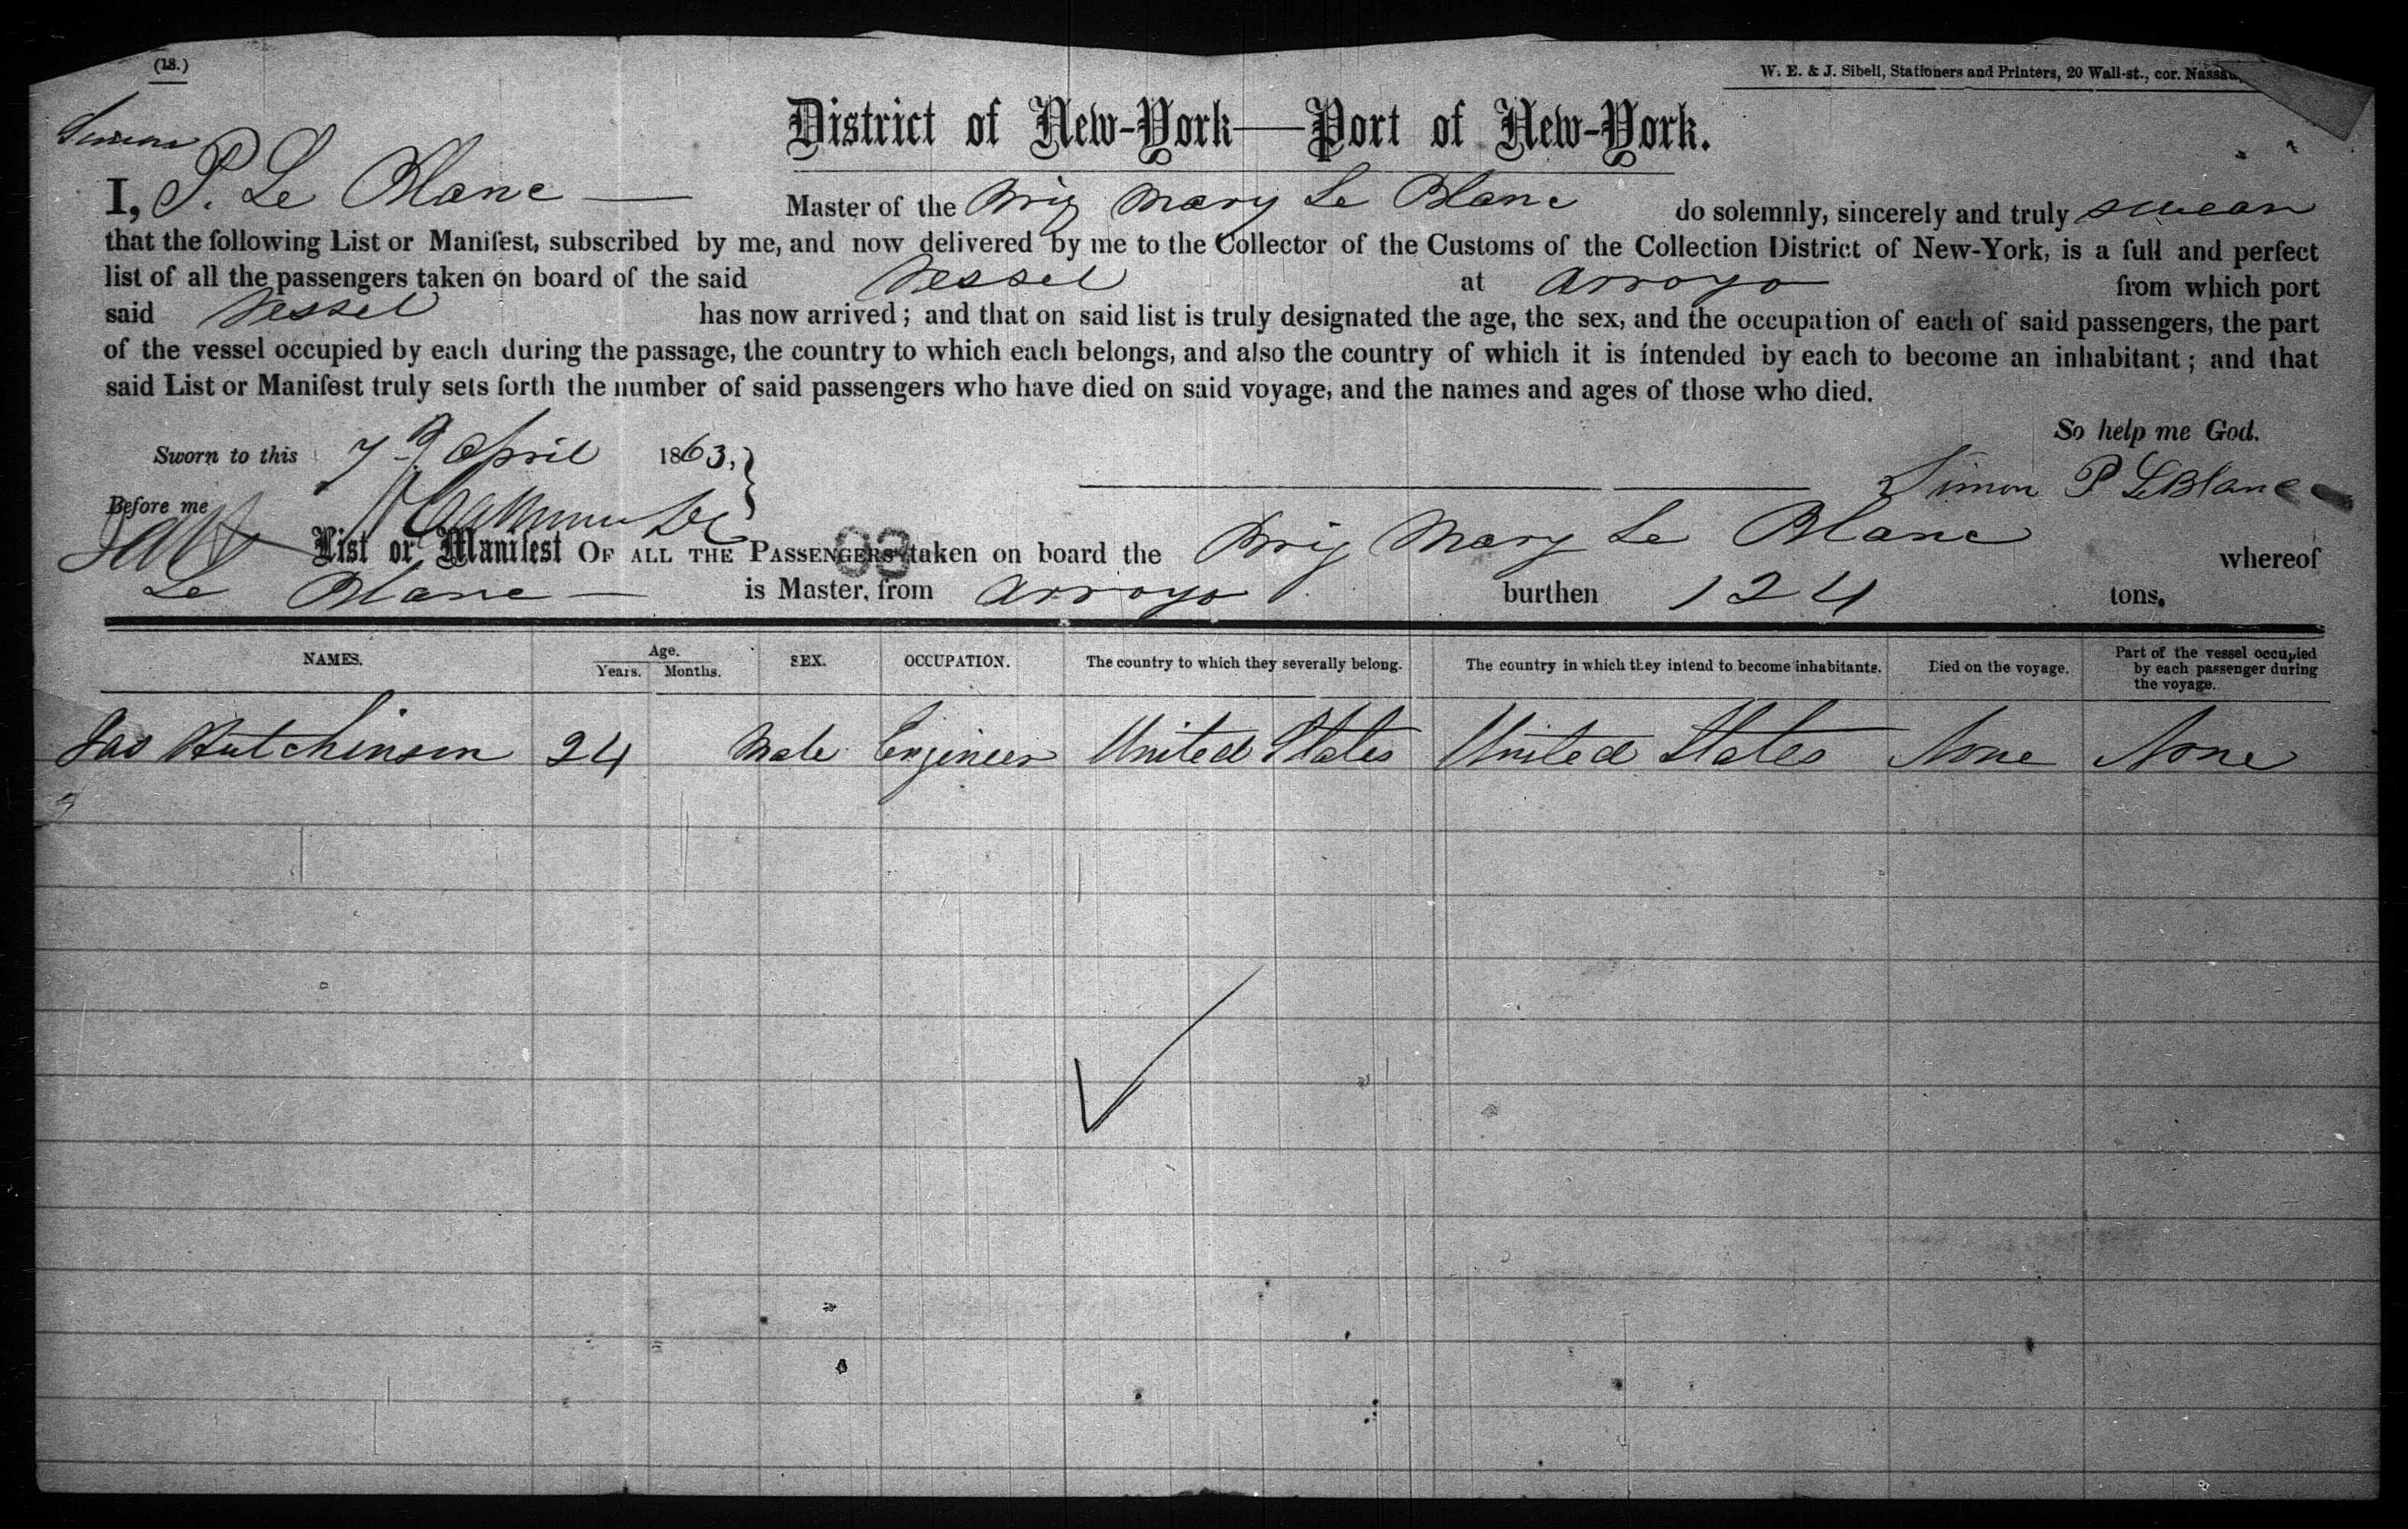 (18.)
W. E. & J. Sibell, Stationers and Printers, 20 Wall-st., cor. Nassau
District of New-York—Port of New-York.
Simon
I, P. Le Blanc — Master of the Brig Mary Le Blanc do solemnly, sincerely and truly swear
that the following List or Manifest, subscribed by me, and now delivered by me to the Collector of the Customs of the Collection District of New-York, is a full and perfect
list of all the passengers taken on board of the said Vessel at Arroyo from which port
said Vessel has now arrived; and that on said list is truly designated the age, the sex, and the occupation of each of said passengers, the part
of the vessel occupied by each during the passage, the country to which each belongs, and also the country of which it is intended by each to become an inhabitant; and that
said List or Manifest truly sets forth the number of said passengers who have died on said voyage, and the names and ages of those who died.
So help me God.
Sworn to this 7th April 1863,
Simon P LeBlanc
Before me
List or Manifest OF ALL THE PASSENGERS taken on board the Brig Mary Le Blanc whereof
Le Blanc — is Master, from Arroyo burthen 124 tons.
NAMES. Age. Years. Months. SEX. OCCUPATION. The country to which they severally belong. The country in which they intend to become inhabitants. Died on the voyage. Part of the vessel occupied by each passenger during the voyage.
Jas Hutchinson 24 Male Engineer United States United States None None